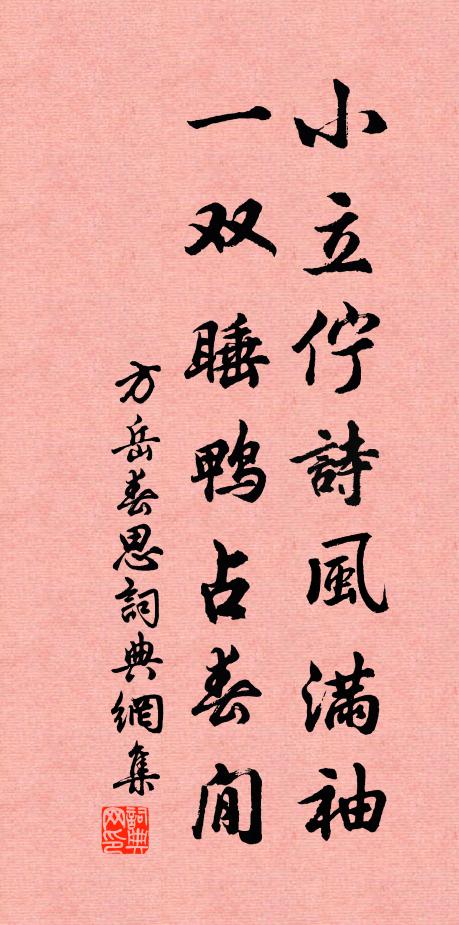 小立佇詩風滿袖
一双睡鴨占春閒
方岳春思詞典網集
詞典网印